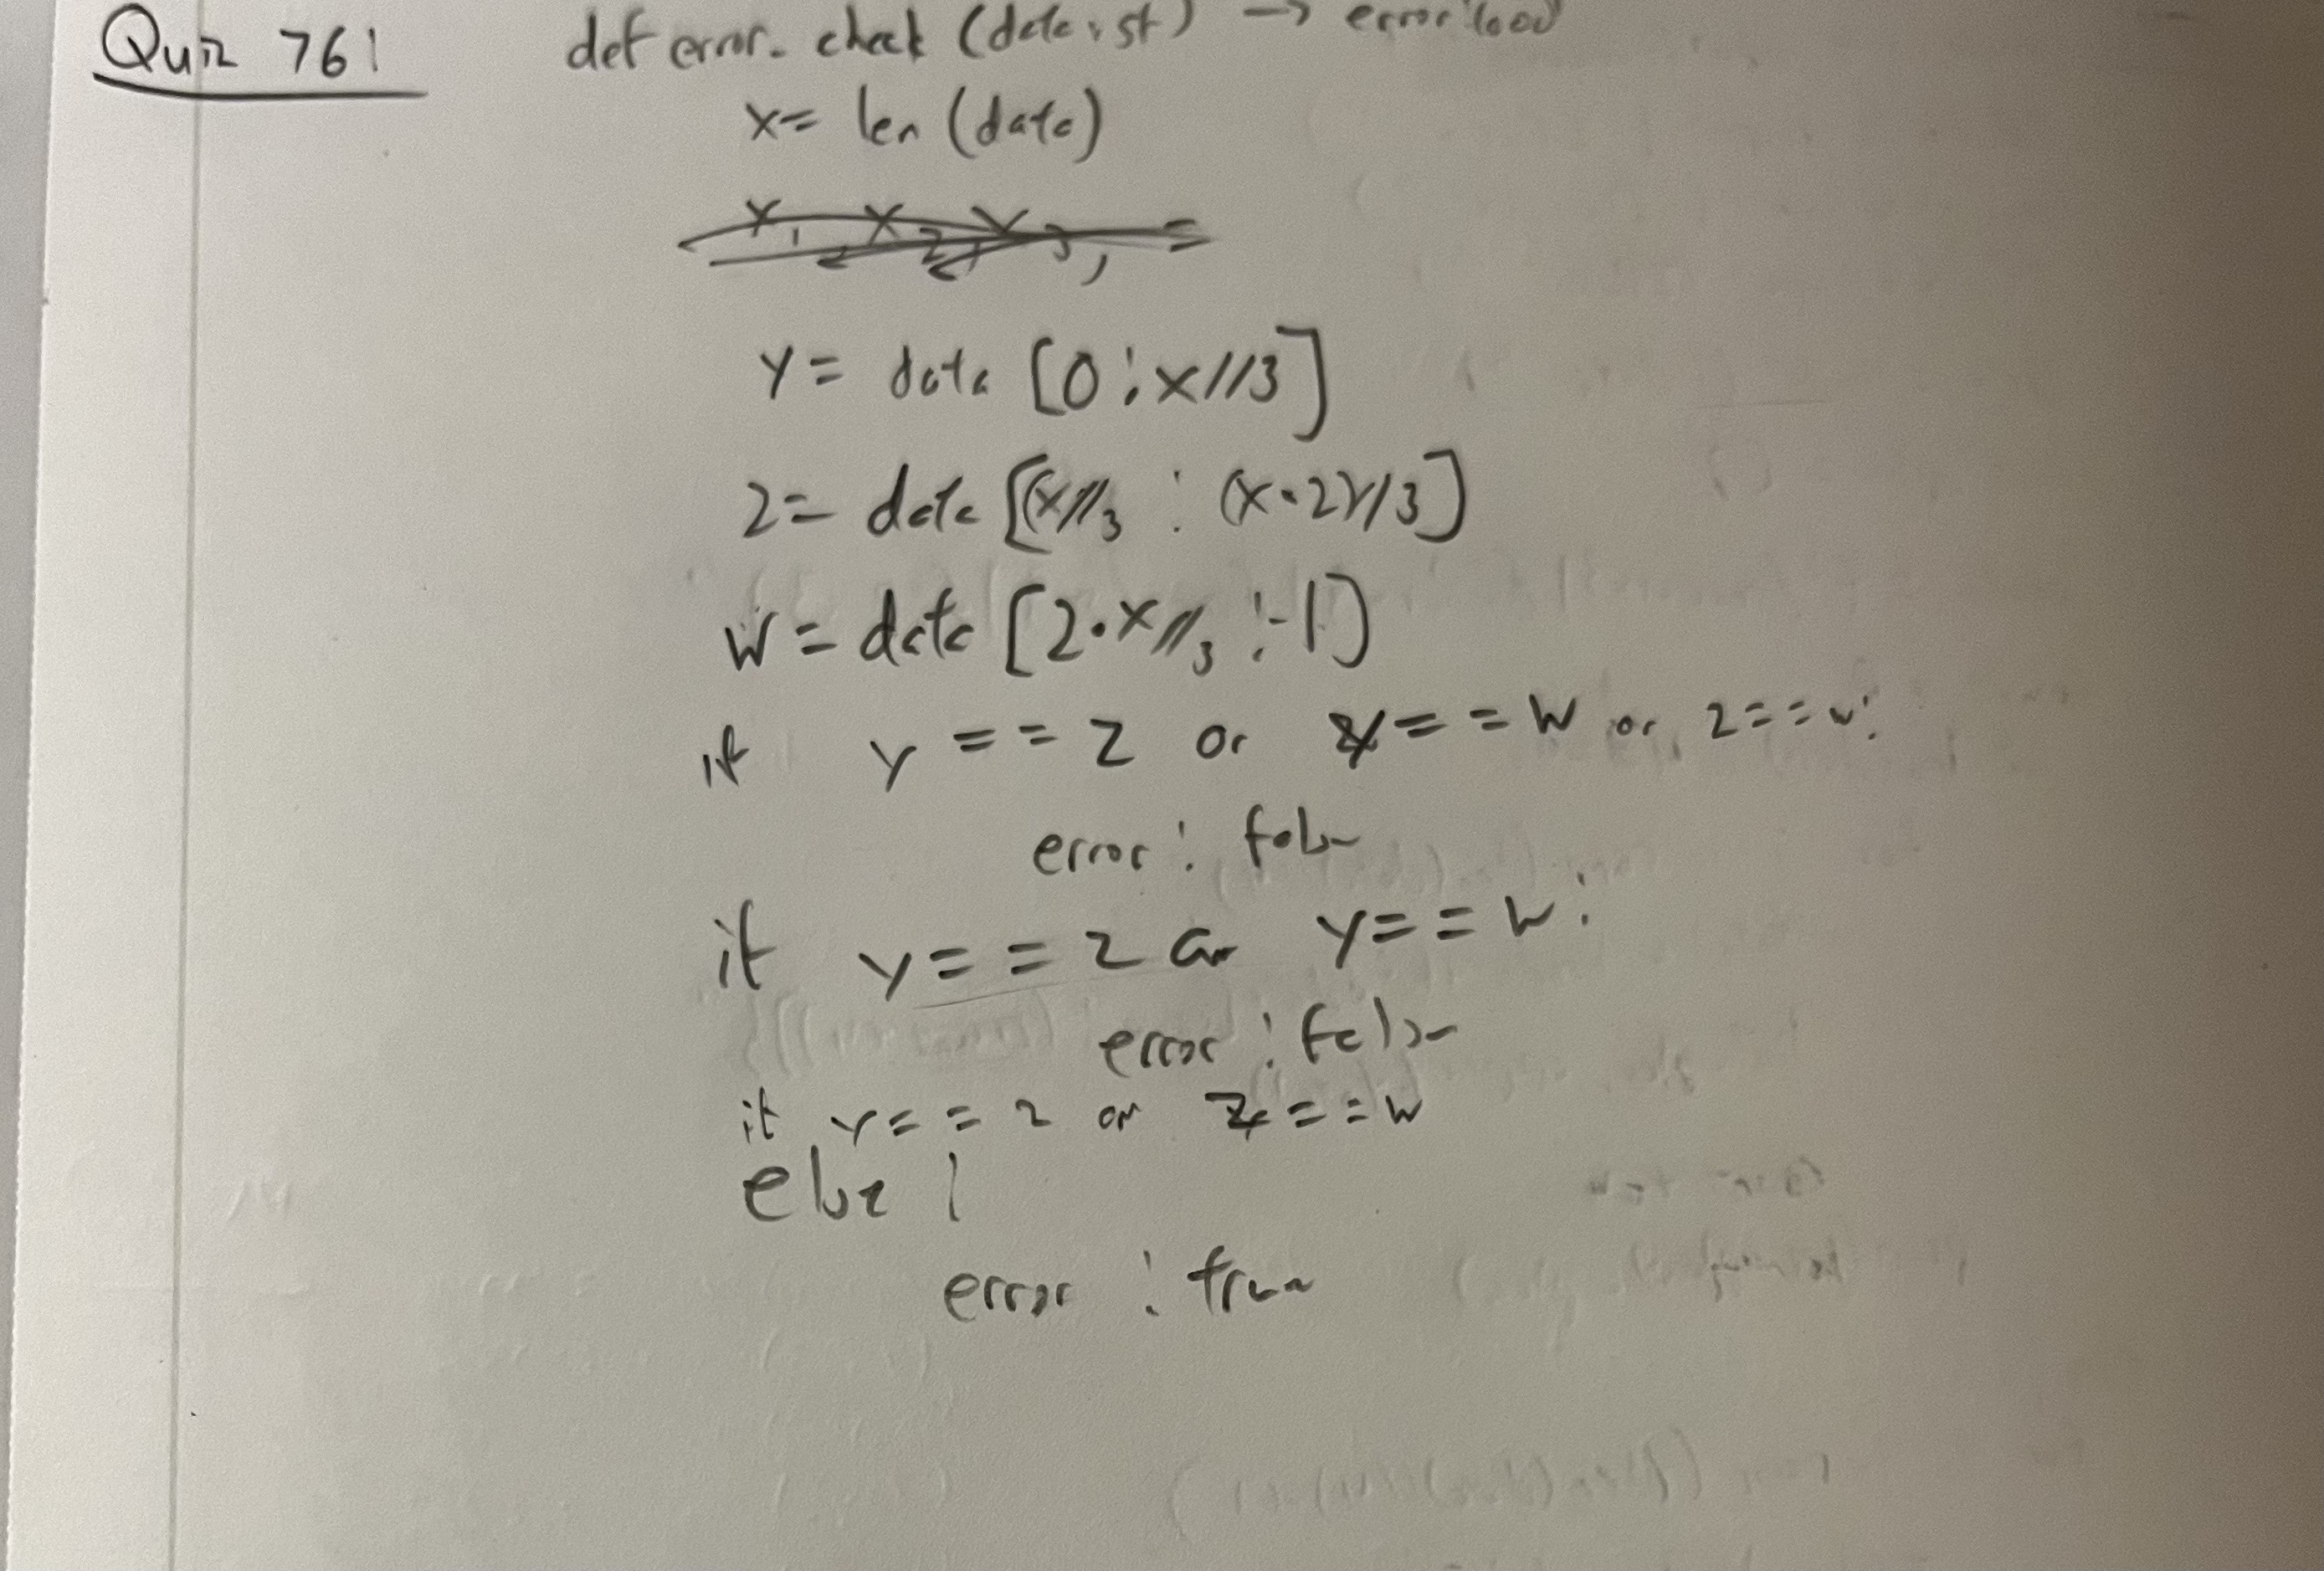 Quiz 761
def error_check (data: st) → error: bool
x = len (data)
x1, x2, x3, =
y = data [0:x//3]
z = data [(x//3 : (x·2)//3]
w = data [2·x//3 :-1]
if y == z or y == w or z == w:
error: false
if y == z or y == w:
error: false
if y == z or z == w
else :
error : true